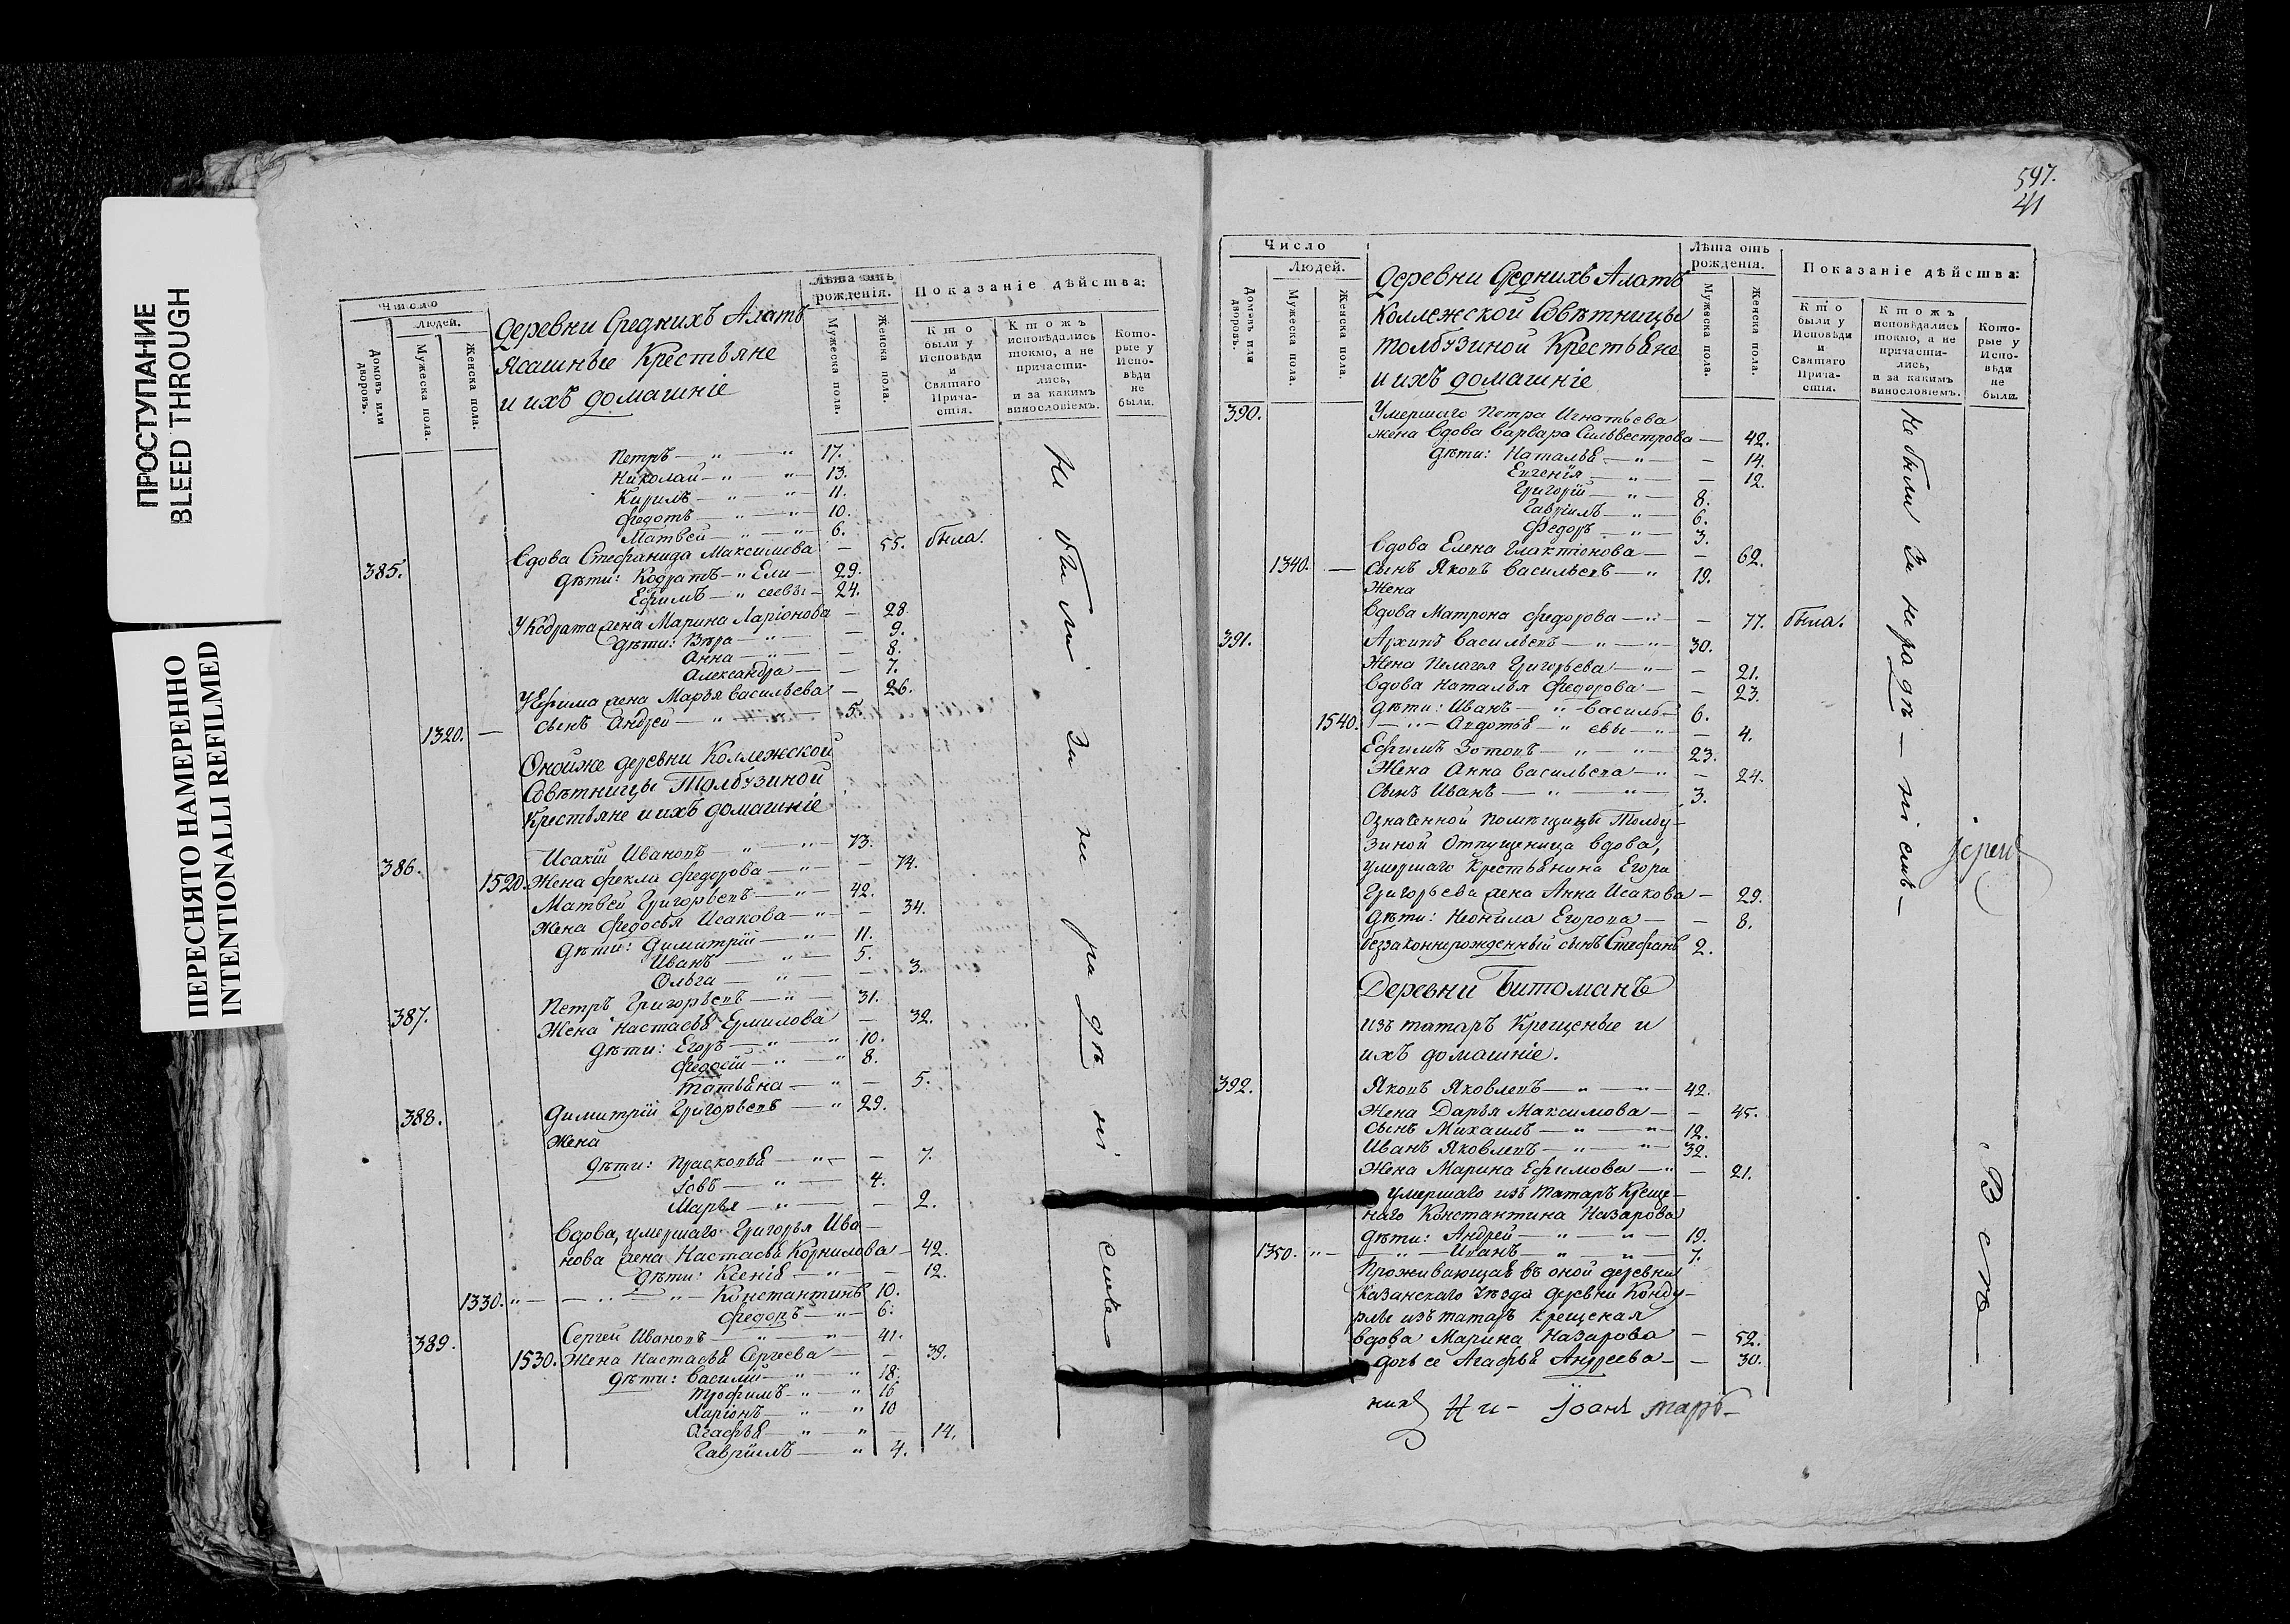 ПРОСТУПАНИЕ
BLEED THROUGH
ПЕРЕСНЯТО НАМЕРЕННО
INTENTIONALLI REFILMED
Число
Людей.
Домовъ или дворовъ.
Мужеска пола.
Женска пола.
Деревни Среднихъ Алатъ
Ясашные Крестьяне
и ихъ домашніе
Лѣта отъ рожденія.
Мужеска пола.
Женска пола.
Показаніе дѣйства:
Кто были у Исповѣди и Святаго Причастія.
Ктожъ исповѣдались токмо, а не причастились, и за какимъ винословіемъ.
Которые у Исповѣди не были.
Петръ — " — " 17.
Николай — " — " 13.
Кирилъ — " — " 11.
Федотъ — " — " 10.
Матвей — " — " 6.
385. Вдова Стефанида Максимова — 55. была.
Дѣти: Кодратъ — " Ели — 29.
Ефимъ — " сеевы — 24.
У Кодрата жена Марина Ларіонова — 28.
Дѣти: Вѣра — " — 9.
Анна — " — 8.
Александра — 7.
У Ефима жена Марья Васильева — 26.
1320. — сынъ Андрей — " — 5.
Онойже деревни Коллежской
Совѣтницы Толбузиной
Крестьяне и ихъ домашніе
386. Исакій Ивановъ — " — " 73.
1520. Жена Фекла Федорова — " — 74.
Матвей Григорьевъ — " — 42.
Жена Федосья Исакова — " — 34.
Дѣти: Димитрій — " — 11.
Иванъ — " — 5.
Ольга — " — 3.
387. Петръ Григорьевъ — " — 31.
Жена Настасья Ермилова — 32.
Дѣти: Егоръ — " — " 10.
Федосій — " — " 8.
Татьяна — " — 5.
388. Димитрій Григорьевъ — " 29.
Жена
Дѣти: Прасковья — " — 7.
Іовъ — " — 4.
Марья — " — 2.
Вдова, умершаго Григорья Ива-
нова жена Настасья Корнилова — 42.
Дѣти: Ксенія — " — 12.
1330. " — — " — " — Константинъ 10.
Федоръ — " — 6.
389. Сергей Ивановъ — " — " — 41.
1530. Жена Настасья Сергеева — 39.
Дѣти: Василій — " — " 18.
Трофимъ — " — " 16
Ларіонъ — " — " 10
Агафья — " — " 14.
Гавріилъ — " 4.
Не были За не ра дѣ ні емъ
597.
41
Число
Людей.
Домовъ или дворовъ.
Мужеска пола.
Женска пола.
Деревни Среднихъ Алатъ
Коллежской Совѣтницы
Толбузиной Крестьяне
и ихъ домашніе
Лѣта отъ рожденія.
Мужеска пола.
Женска пола.
Показаніе дѣйства:
Кто были у Исповѣди и Святаго Причастія.
Ктожъ исповѣдались токмо, а не причастились, и за какимъ винословіемъ.
Которые у Исповѣди не были.
390. Умершаго Петра Игнатьева
жена вдова Варвара Сильвестрова — 42.
Дѣти: Наталья — " — 14.
Евгенія — " — 12.
Григорій — " — 8.
Гавріилъ — " — 6.
Федоръ — " — 3.
Вдова Елена Глактіонова — 62.
1340. — Сынъ Яковъ Васильевъ — " 19.
Жена
Вдова Матрона Федорова — " — 77. была.
391. Архипъ Васильевъ — " — " 30.
Жена Пелагея Григорьева — " — 21.
Вдова Наталья Федорова — 23.
Дѣти: Иванъ — " Василь- 6.
1540. — " — Авдотья — " евы — " — 4.
Ефимъ Зотовъ — " — " 23.
Жена Анна Васильева — " — 24.
Сынъ Иванъ — " — " — 3.
Означенной помѣщицы Толбу-
зиной Отпущеница вдова,
умершаго Крестьянина Егора
Григорьева жена Анна Исакова — 29.
Дѣти: Неонила Егорова — 8.
беззаконнорожденный сынъ Стефанъ 2.
Деревни Битоманъ
изъ татаръ Крещеные и
ихъ домашніе.
392. Яковъ Яковлевъ — " — " 42.
Жена Дарья Максимова — 45.
Сынъ Михаилъ — " — " 12.
Иванъ Яковлевъ — " — " 32.
Жена Марина Ефимова — " — 21.
умершаго изъ Татаръ Креще-
наго Константина Назарова
Дѣти: Андрей — " — " — 19.
1350. " — — " — Иванъ — " — " — 7.
Проживающая въ оной деревни
Казанскаго Уѣзда деревни Конду-
рлы изъ татаръ Крещеная
вдова Марина Назарова — 52.
дочь ее Агафья Андреева — 30.
Не были За не ра дѣ — ні емъ —
Іерей
нихъ Ни- Іоанъ